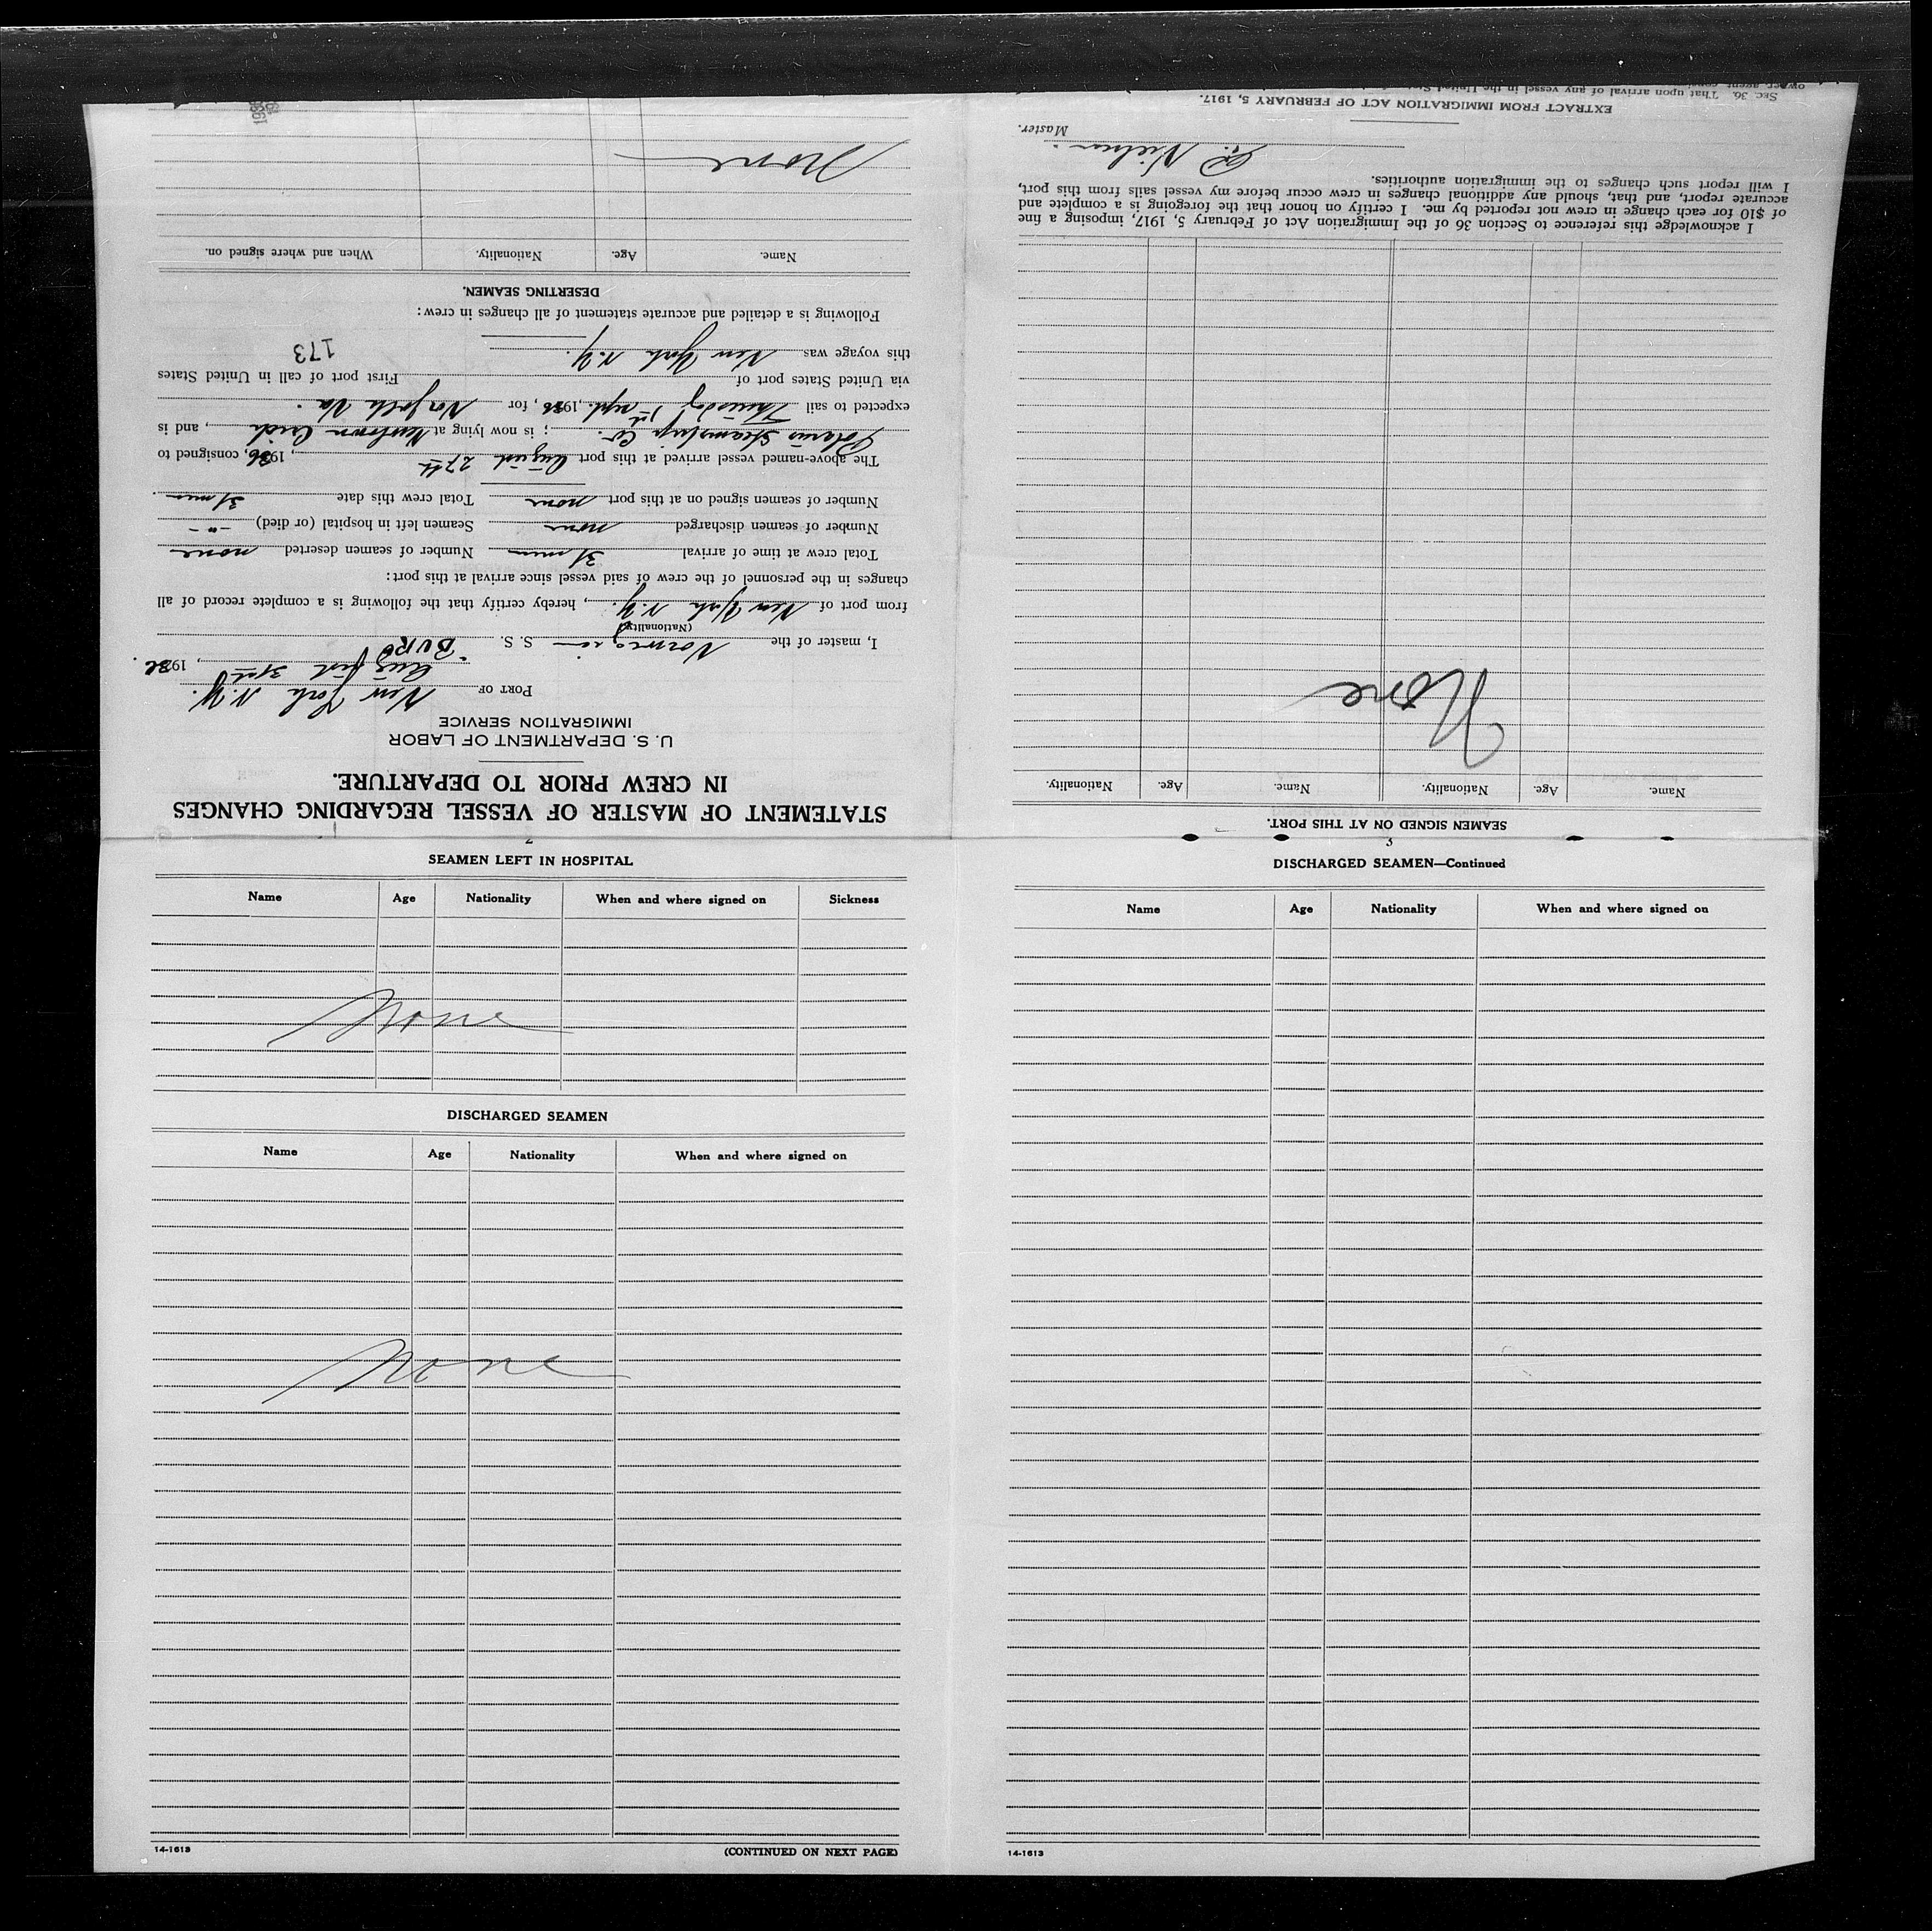 STATEMENT OF MASTER OF VESSEL REGARDING CHANGES
IN CREW PRIOR TO DEPARTURE.
U. S. DEPARTMENT OF LABOR
IMMIGRATION SERVICE
PORT OF New York N.Y.
August 31st, 1936.
I, master of the Norwegian S. S. "BURG
(Nationality)
from port of New York N.Y., hereby certify that the following is a complete record of all
changes in the personnel of the crew of said vessel since arrival at this port:
Total crew at time of arrival 31 men Number of seamen deserted none
Number of seamen discharged none Seamen left in hospital (or died) -"-
Number of seamen signed on at this port none Total crew this date 31 men
The above-named vessel arrived at this port August 27th, 1936, consigned to
Polarus Steamship Co.; is now lying at Newtown Creek, and is
expected to sail 1st sept., 1936, for Norfolk Va.
via United States port of First port of call in United States
this voyage was New York N.Y.
173
Following is a detailed and accurate statement of all changes in crew:
DESERTING SEAMEN.
Name. Age. Nationality. When and where signed on.
None
SEAMEN LEFT IN HOSPITAL
Name Age Nationality When and where signed on Sickness
None
DISCHARGED SEAMEN
Name Age Nationality When and where signed on
None
14-1613 (CONTINUED ON NEXT PAGE)
3
DISCHARGED SEAMEN—Continued
Name Age Nationality When and where signed on
14-1613
SEAMEN SIGNED ON AT THIS PORT.
Name. Age. Nationality. Name. Age. Nationality.
None
I acknowledge this reference to Section 36 of the Immigration Act of February 5, 1917, imposing a fine
of $10 for each change in crew not reported by me. I certify on honor that the foregoing is a complete and
accurate report, and that, should any additional changes in crew occur before my vessel sails from this port,
I will report such changes to the immigration authorities.
Nielsen
Master.
EXTRACT FROM IMMIGRATION ACT OF FEBRUARY 5, 1917.
SEC. 36. That upon arrival of any vessel in the United